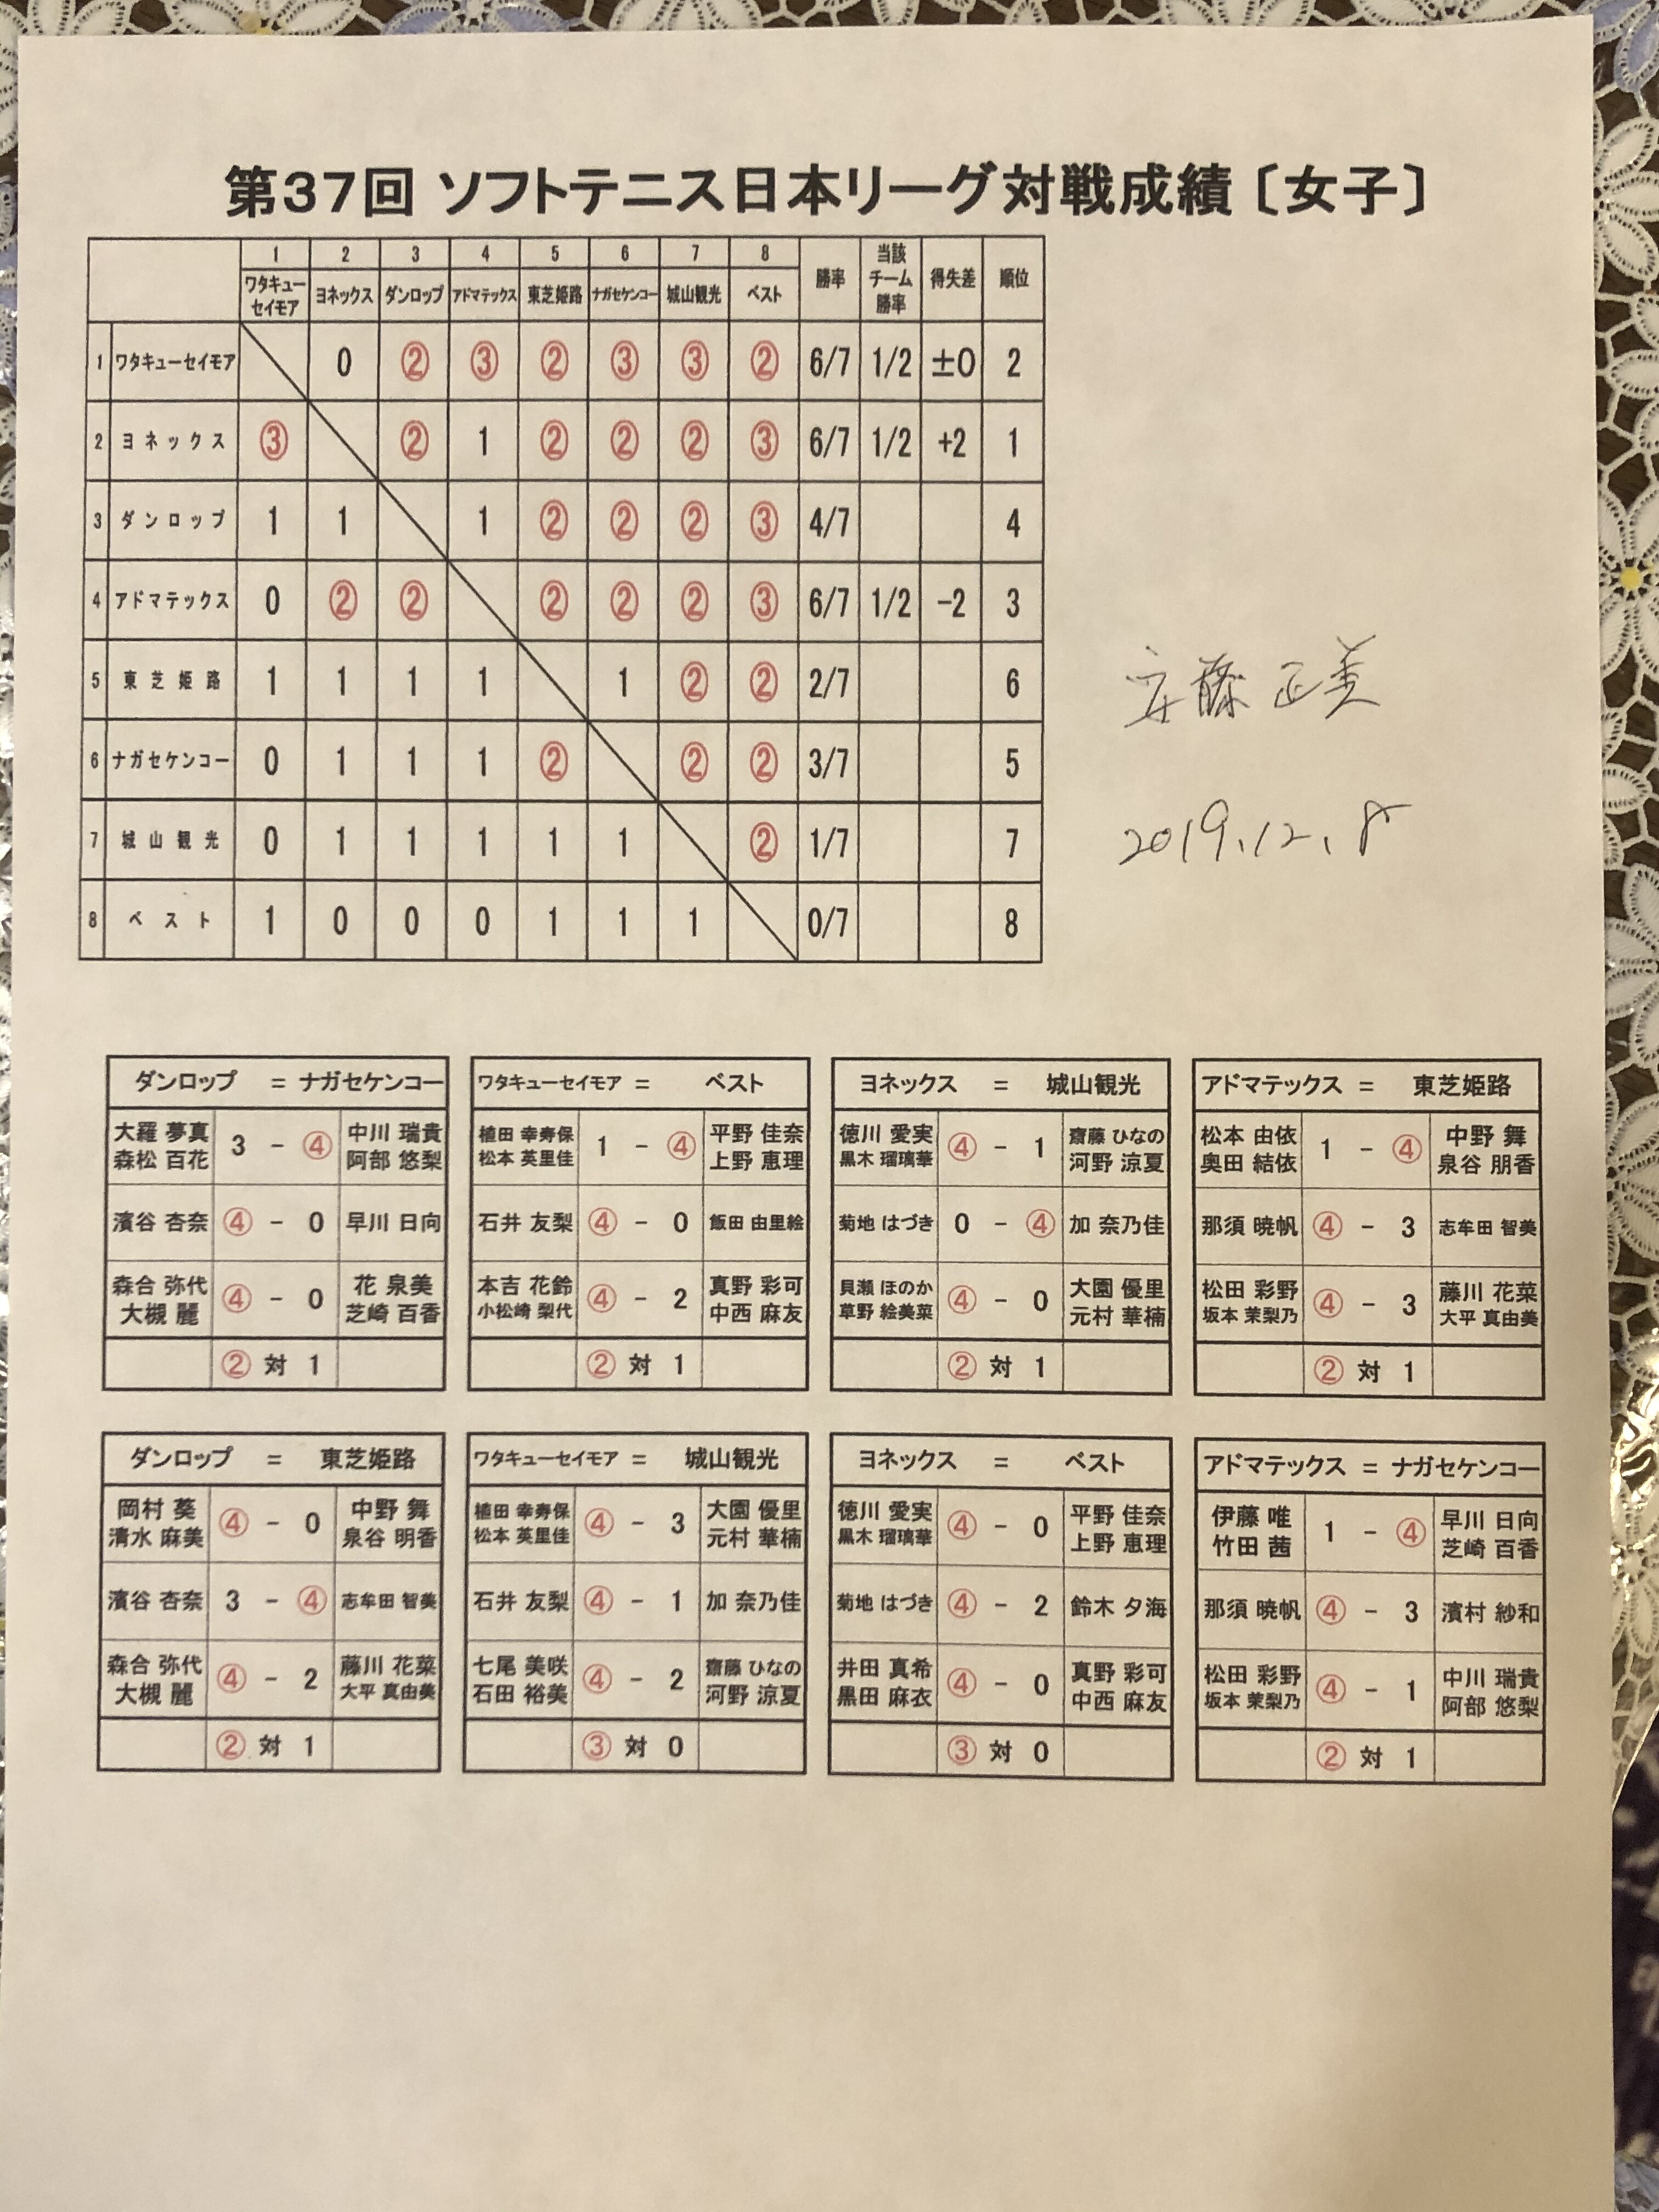 第37回 ソフトテニス日本リーグ対戦成績〔女子〕
1 2 3 4 5 6 7 8 勝率 当該チーム勝率 得失差 順位
ワタキューセイモア ヨネックス ダンロップ アドマテックス 東芝姫路 ナガセケンコー 城山観光 ベスト
1 ワタキューセイモア 0 ② ③ ② ③ ③ ② 6/7 1/2 ±0 2
2 ヨネックス ③ ② 1 ② ② ② ③ 6/7 1/2 +2 1
3 ダンロップ 1 1 1 ② ② ② ③ 4/7 4
4 アドマテックス 0 ② ② ② ② ② ③ 6/7 1/2 -2 3
5 東芝姫路 1 1 1 1 1 ② ② 2/7 6
6 ナガセケンコー 0 1 1 1 ② ② ② 3/7 5
7 城山観光 0 1 1 1 1 1 ② 1/7 7
8 ベスト 1 0 0 0 1 1 1 0/7 8
安藤 正美
2019.12.8
ダンロップ = ナガセケンコー
大羅 夢真 3 - ④ 中川 瑞貴
森松 百花 阿部 悠梨
濱谷 杏奈 ④ - 0 早川 日向
森合 弥代 ④ - 0 花 泉美
大槻 麗 芝崎 百香
② 対 1
ワタキューセイモア = ベスト
植田 幸寿保 1 - ④ 平野 佳奈
松本 英里佳 上野 恵理
石井 友梨 ④ - 0 飯田 由里絵
本吉 花鈴 ④ - 2 真野 彩可
小松崎 梨代 中西 麻友
② 対 1
ヨネックス = 城山観光
徳川 愛実 ④ - 1 齋藤 ひなの
黒木 瑠璃華 河野 涼夏
菊地 はづき 0 - ④ 加 奈乃佳
貝瀬 ほのか ④ - 0 大園 優里
草野 絵美菜 元村 華楠
② 対 1
アドマテックス = 東芝姫路
松本 由依 1 - ④ 中野 舞
奥田 結依 泉谷 朋香
那須 暁帆 ④ - 3 志牟田 智美
松田 彩野 ④ - 3 藤川 花菜
坂本 茉梨乃 大平 真由美
② 対 1
ダンロップ = 東芝姫路
岡村 葵 ④ - 0 中野 舞
清水 麻美 泉谷 明香
濱谷 杏奈 3 - ④ 志牟田 智美
森合 弥代 ④ - 2 藤川 花菜
大槻 麗 大平 真由美
② 対 1
ワタキューセイモア = 城山観光
植田 幸寿保 ④ - 3 大園 優里
松本 英里佳 元村 華楠
石井 友梨 ④ - 1 加 奈乃佳
七尾 美咲 ④ - 2 齋藤 ひなの
石田 裕美 河野 涼夏
③ 対 0
ヨネックス = ベスト
徳川 愛実 ④ - 0 平野 佳奈
黒木 瑠璃華 上野 恵理
菊地 はづき ④ - 2 鈴木 夕海
井田 真希 ④ - 0 真野 彩可
黒田 麻衣 中西 麻友
③ 対 0
アドマテックス = ナガセケンコー
伊藤 唯 1 - ④ 早川 日向
竹田 茜 芝崎 百香
那須 暁帆 ④ - 3 濱村 紗和
松田 彩野 ④ - 1 中川 瑞貴
坂本 茉梨乃 阿部 悠梨
② 対 1